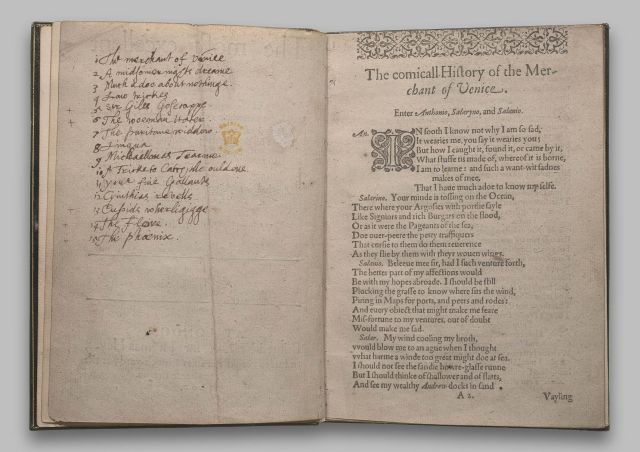 1 The merchant of Venice
2 A midsomer nights dreame
3 Much adoe about nothinge.
4 Law trickes
5 Sir Giles Goscappe
6 The woeman hater
7 The puritane widdow
8 Lingua
9 Michaellmas Tearme
10 A Tricke to Catch the ould one
11 your five Gallants
12 Cynthias revells
13 Cupids wherligigge
14 The fleire.
15 The phœnix.
The comicall History of the Mer-
chant of Venice.
Enter Anthonio, Salaryno, and Salanio.
An. IN sooth I know not why I am so sad,
It wearies me, you say it wearies you;
But how I caught it, found it, or came by it,
What stuffe tis made of, whereof it is borne,
I am to learne: and such a want-wit sadnes
makes of mee,
That I haue much adoe to know my selfe.
Salarino. Your minde is tossing on the Ocean,
There where your Argosies with portlie sayle
Like Signiors and rich Burgars on the flood,
Or as it were the Pageants of the sea,
Doe ouer-peere the petty traffiquers
That cursie to them do them reuerence
As they flie by them with theyr wouen wings.
Salanio. Beleeue mee sir, had I such venture forth,
The better part of my affections would
Be with my hopes abroade. I should be still
Plucking the grasse to know where sits the wind,
Piring in Maps for ports, and peers and rodes:
And euery obiect that might make me feare
Mis-fortune to my ventures, out of doubt
Would make me sad.
Salar. My wind cooling my broth,
vvould blow me to an ague when I thought
vvhat harme a winde too great might doe at sea.
I should not see the sandie howre-glasse runne
But I should thinke of shallowes and of flatts,
And see my wealthy Andrew docks in sand
A 2. Vayling